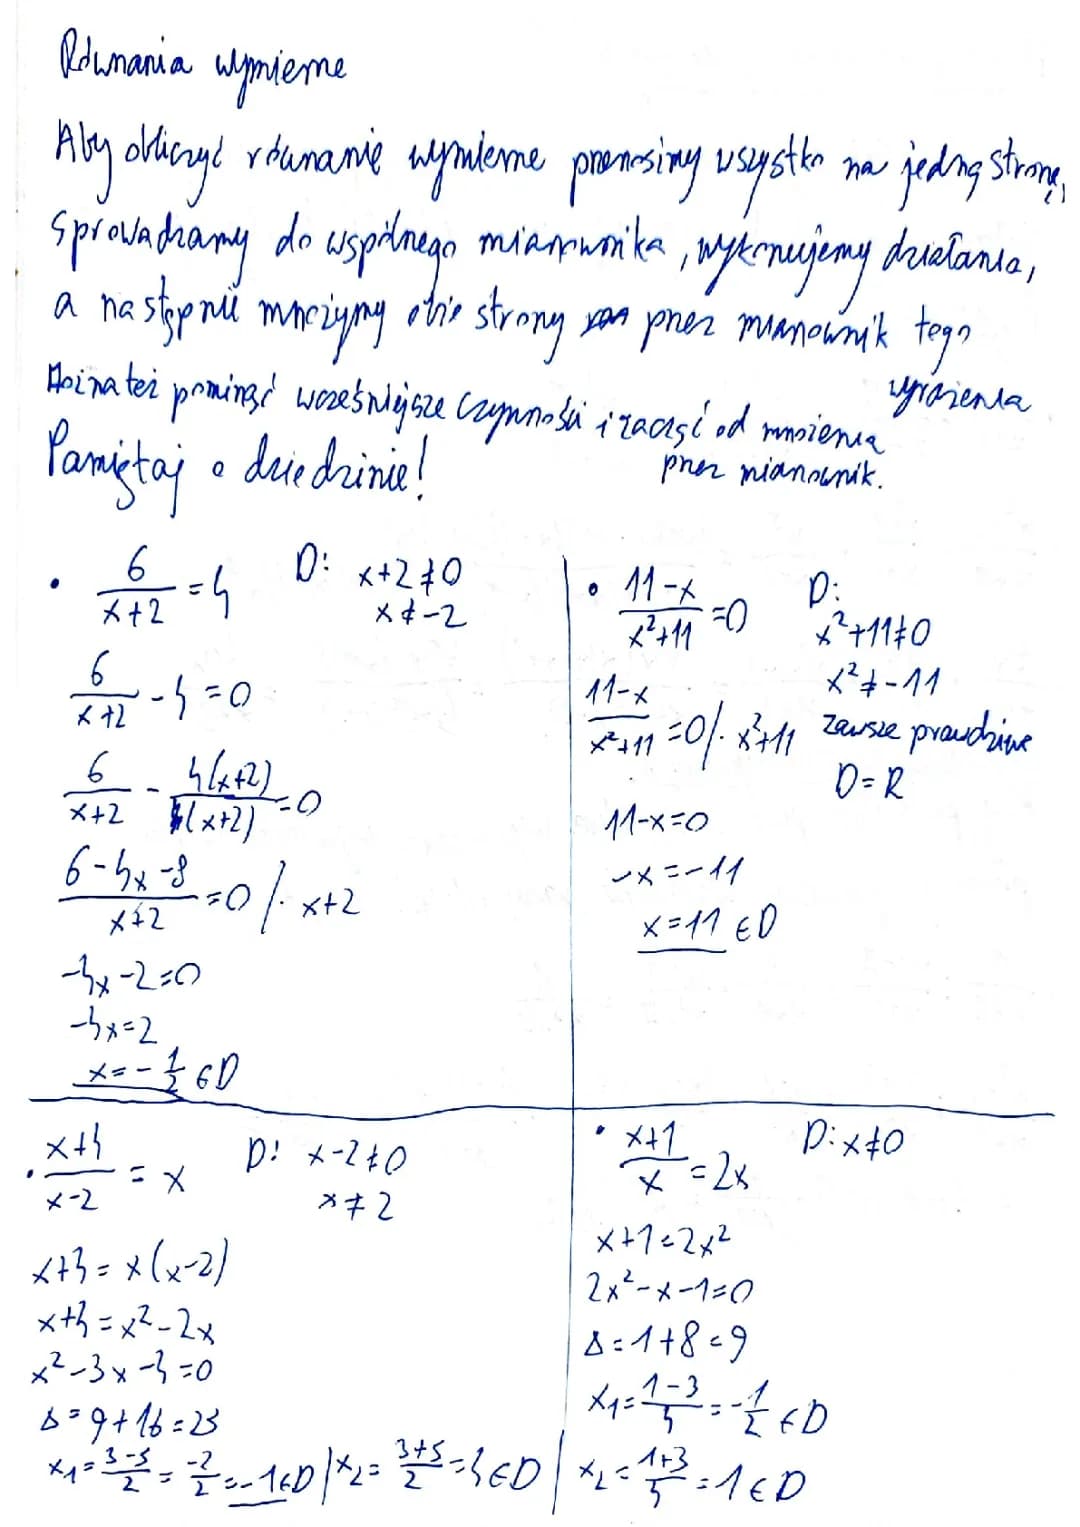 Równania wymierne
Aby obliczyć równanie wymierne przenosimy wszystko na jedną stronę,
sprowadzamy do wspólnego mianownika, wykonujemy działania,
a następnie mnożymy obie strony przez mianownik tego
wyrażenia
Można też pominąć wcześniejsze czynności i zacząć od mnożenia
przez mianownik.
Pamiętaj o dziedzinie!
• 6/(x+2) = 4 D: x+2≠0
x≠-2
6/(x+2) - 4 = 0
6/(x+2) - 4(x+2)/(x+2) = 0
(6-4x-8)/(x+2) = 0 /· x+2
-4x-2=0
-4x=2
x=-1/2 ∈D
• (11-x)/(x²+11) = 0 D:
x²+11≠0
x²≠-11
(11-x)/(x²+11) = 0 /· x²+11 zawsze prawdziwe
D=R
11-x=0
-x=-11
x=11 ∈D
• (x+4)/(x-2) = x D: x-2≠0
x≠2
x+4=x(x-2)
x+4=x²-2x
x²-3x-4=0
Δ=9+16=25
x₁=(3-5)/2=-2/2=-1∈D | x₂=(3+5)/2=4∈D
• (x+1)/x = 2x D: x≠0
x+1=2x²
2x²-x-1=0
Δ=1+8=9
x₁=(1-3)/4=-1/2 ∈D
x₂=(1+3)/4=1∈D